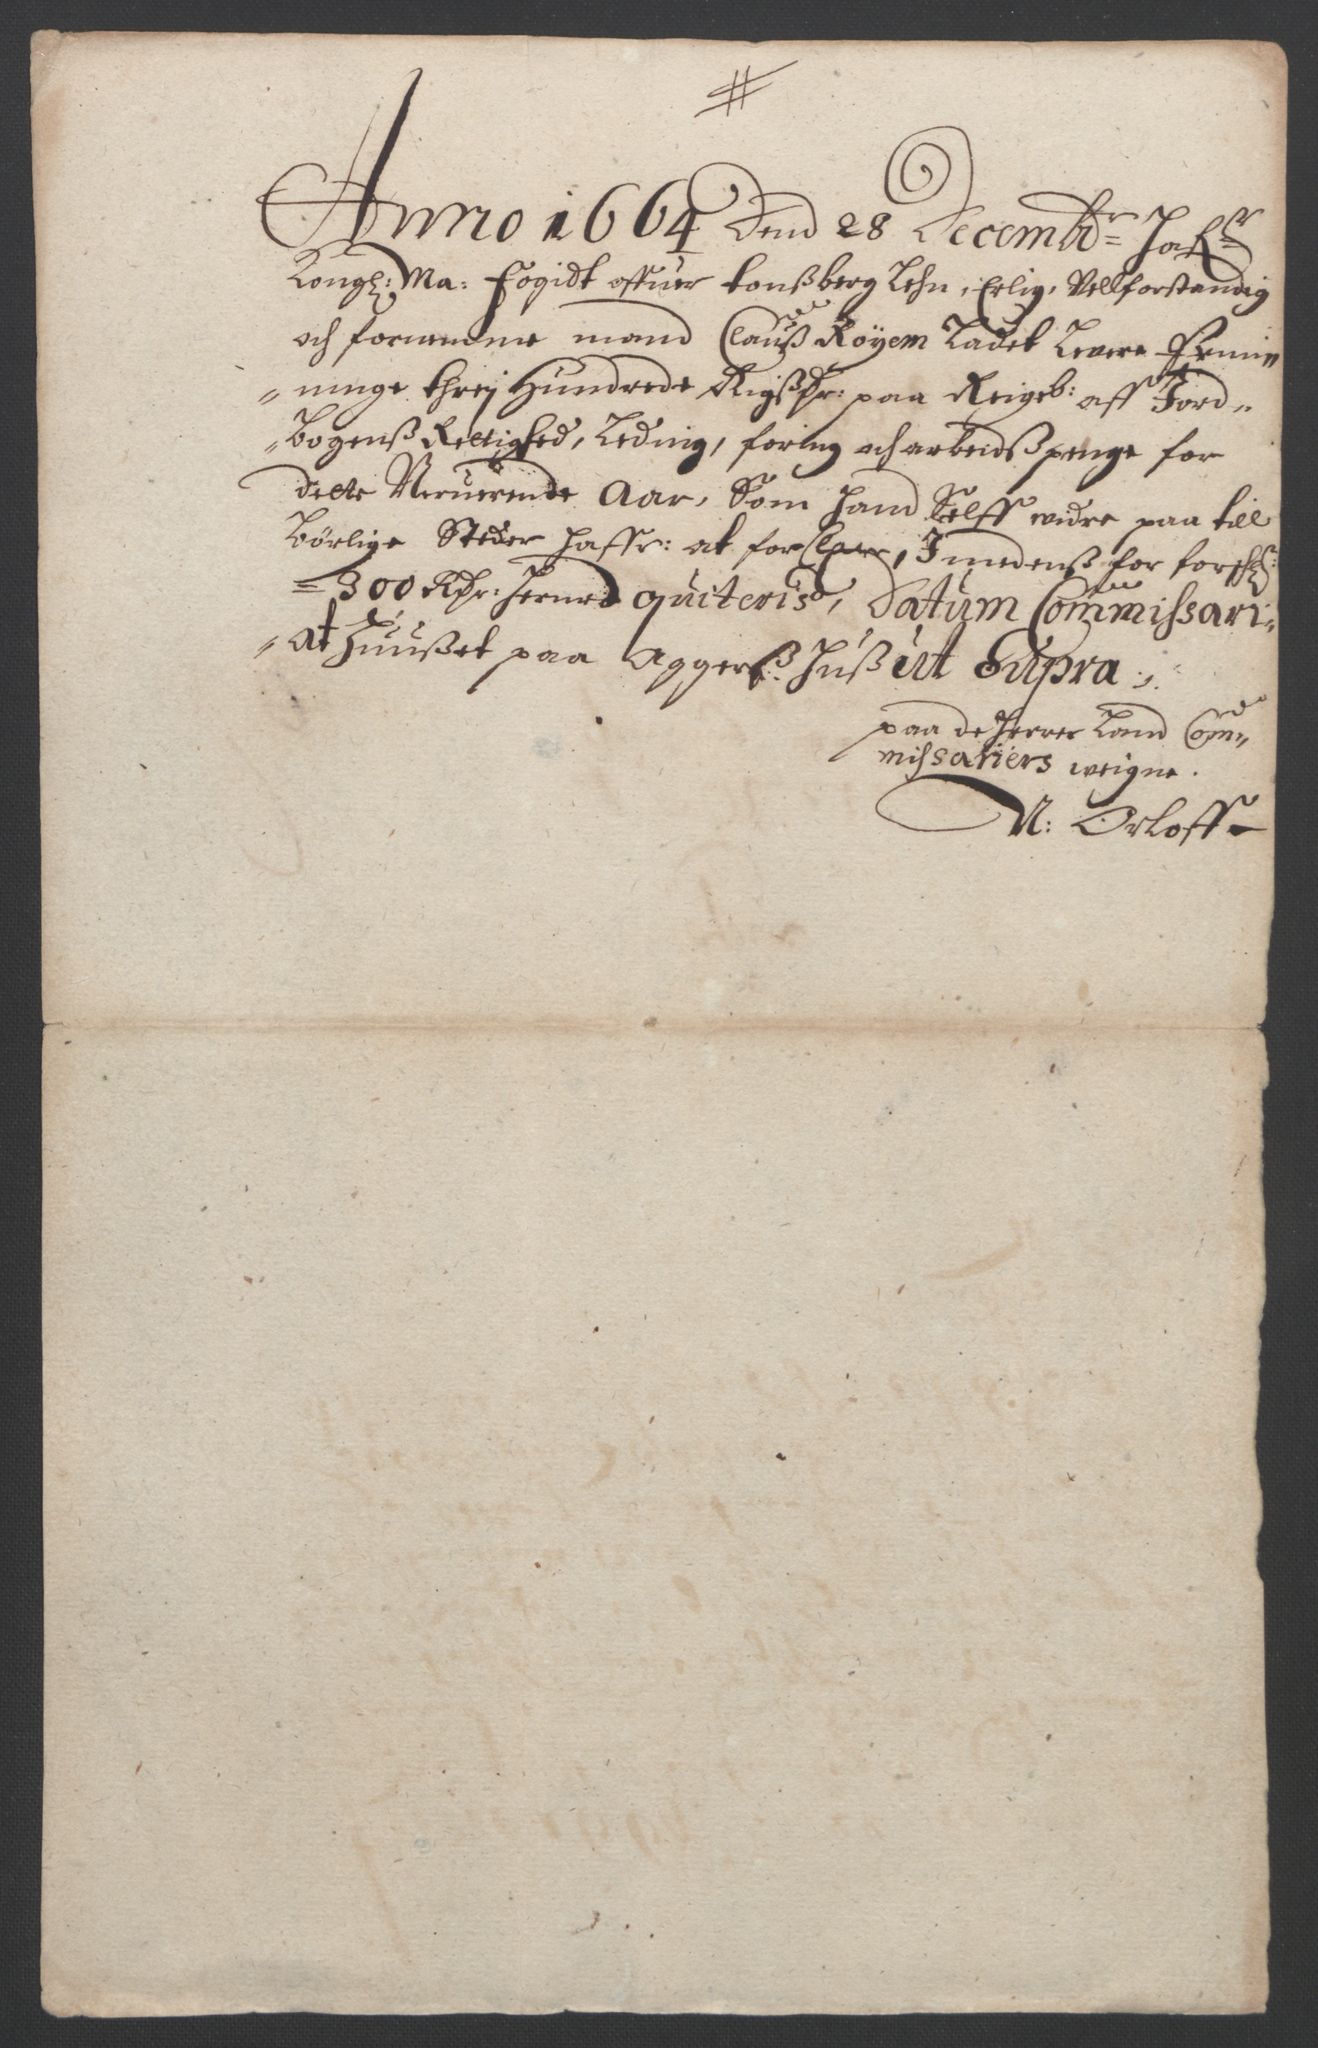 Anno 1664 Dend 28 Decembr: Hafr:
Kongl: Ma: Fogidt offuer tonßberg Lehn, Erlig, Vellforstandig
och fornemme mand Clauß Röyem Ladet Levere
ninge threj Hundrede Rigßdr: paa Reigeb: aff Jord„
„bogenß Rettighed, Leding, foring och arbeidßpenge for
dette Neruerende Aar, Som hand Selff widre paa till
börlige Steder haffr: at forClare, Jmedenß for forschr:
„300 Rdr: hermed quiteris, Datum Commissari„
„at Huußet paa Aggerßhuß ut Supra,
paa de Herrer Land Com„
missariers weigne.
N: Orloff